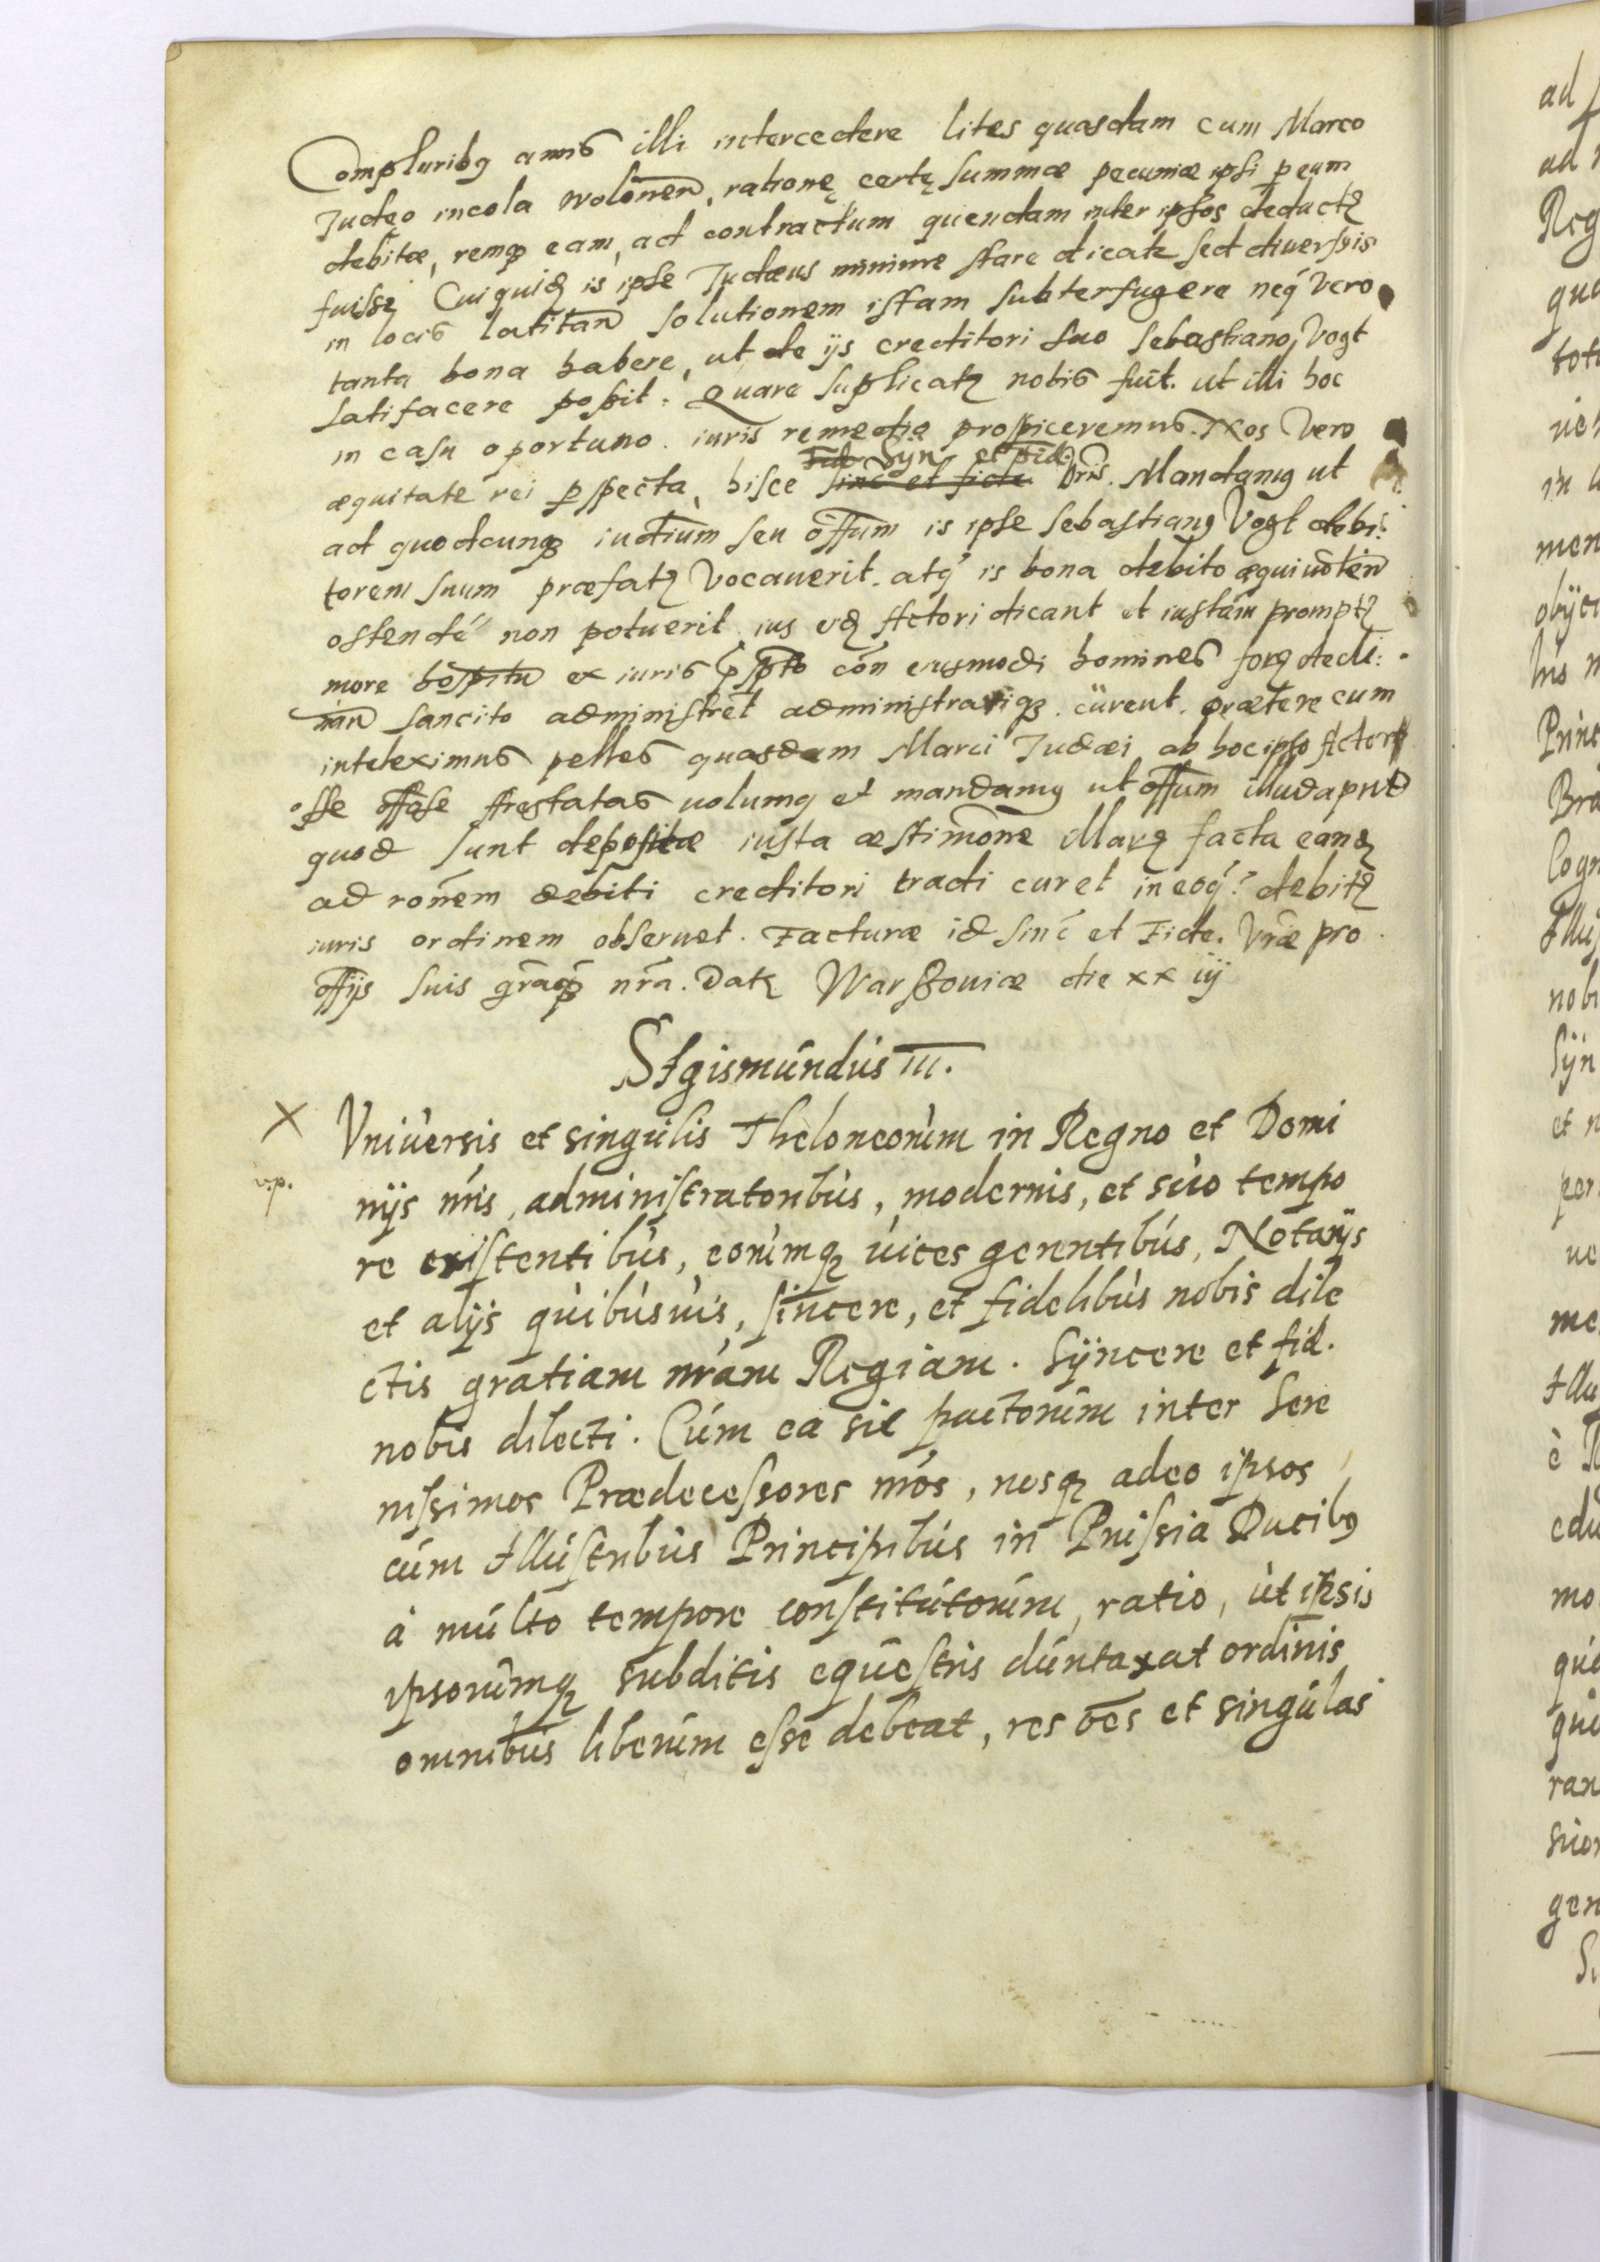 Compluribq annis illi intercedere lites quasdam cum Marco
Judęo incola wolonen, rationę certę summæ pecuniæ ipsi p eum
debitæ, remq eam, ad contractum quendam inter ipsos deductz
fuissę Cui quidz is ipse Judæus minime stare dicatz sed diuersis
in locis latitan solutionem istam subterfugere neq vero
tanta bona habere, ut de ijs creditori suo Sebastiano Vogt
satifacere possit. Quare suplicatz nobis fuit. ut illi hoc
in casu oportuno iuris remedio prospiceremus. Nos vero
Fid Syn et Fid.
æquitate rei pspecta, hisce sinc et fide Vris. Mandamq ut
ad quodcunqz iudium seu offum is ipse Sebastianq Vogt debi:
torem suum præfatz vocauerit. atq is bona debito æquiuolen
ostende non potuerit ius edz Actori dicant et iustam promptz
more hospitu ex iuris pspto con eiusmodi homines forz decli:
nan sancito administret administrariqz curent. prætere cum
intelleximus pelles quasdam Marci Judæi ab hoc ipso Actore
esse Arestatas uolumq et mandamq ut offum illud aput
quod sunt depositæ iusta æstimone Marz facta easdz
ad ronem debiti creditori tradi curet in eoq: debitz
iuris ordinem obseruet. Facturæ id sinc et Fide. Vræ pro
offijs suis graqz nra. Datz Warssouiæ die xx iij
Sigismundus III.
X Vniuersis et singulis Theloneorum in Regno et Domi
v.p.
nijs nris, administratoribus, modernis, et suo tempo
re existentibus, eorumqz uices gerentibus, Notarijs
et alijs quibusuis, sincere, et fidelibus nobis dile
ctis gratiam nram Regiam. Syncere et fid.
nobis dilecti. Cum ea sit pactorum inter Sere
nissimos Prædecessores nros, nosqz adeo ipsos
cum Illustribus Principibus in Prussia Ducibq
à multo tempore constitutorum, ratio, ut ipsis
ipsorumqz subditis equestris duntaxat ordinis
omnibus liberum esse debeat, res oes et singulas